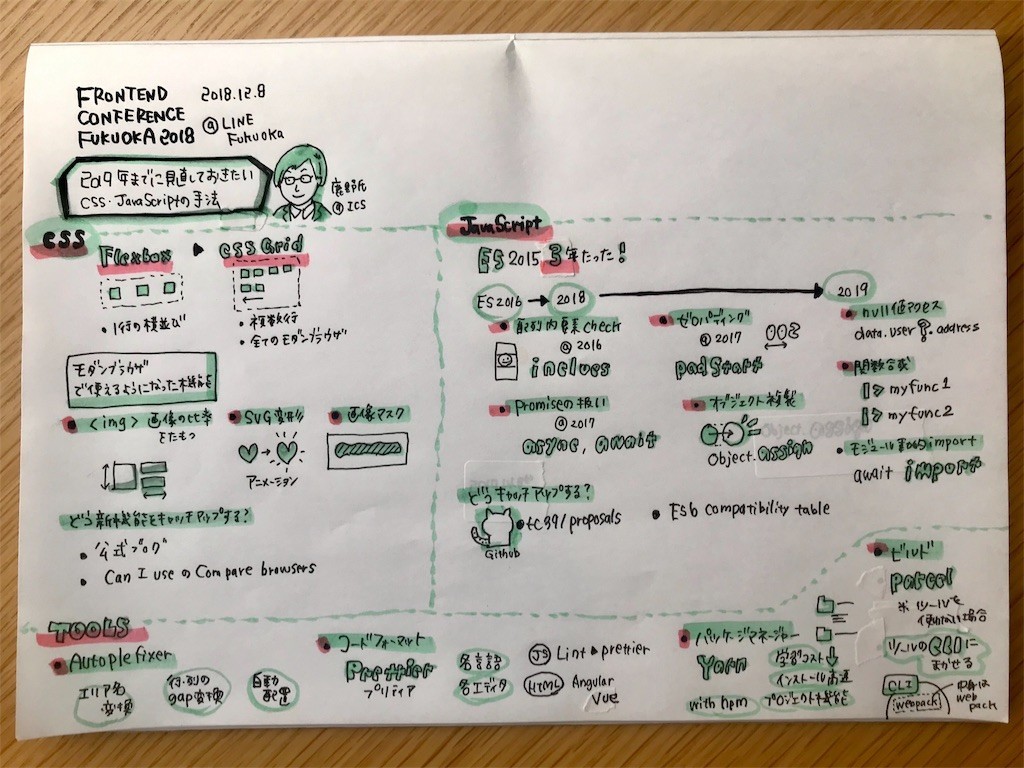 FRONTEND
CONFERENCE
FUKUOKA 2018
2018.12.8
@ LINE
Fukuoka
2019年までに見直しておきたい
CSS・JavaScriptの手法
鹿野氏
@ICS
CSS
Flexbox ▶ CSS Grid
・1行の横並び
・複数行
・全てのモダンブラウザ
モダンブラウザ
で使えるようになった機能
<img> 画像の比率
をたもつ
SVG変形
アニメーション
画像マスク
どう新機能をキャッチアップする?
・公式ブログ
・Can I use の Compare browsers
JavaScript
ES2015 3年たった!
ES2016 → 2018 → 2019
配列内要素check
@2016
inclues
Promiseの扱い
@2017
async, await
ゼロパディング
@2017
002
padStart
オブジェクト複製
Object.assign
null値アクセス
data.user?.address
関数合成
|> myfunc1
|> myfunc2
モジュール import
await import
どうキャッチアップする?
Github
・tc39/proposals
・ES6 compatibility table
TOOLS
Autoplefixer
エリア名
変換
行・列の
gap変換
自動
配置
コードフォーマット
Prettier
プリティア
各言語
各エディタ
JS Lint & prettier
HTML Angular
Vue
パッケージマネージャー
Yarn
学習コスト↓
インストール高速
with npm プロジェクト機能
ビルド
Parcel
※ツールを
使わない場合
ツールのCLIに
まかせる
CLI
webpack
中身は
web
pack